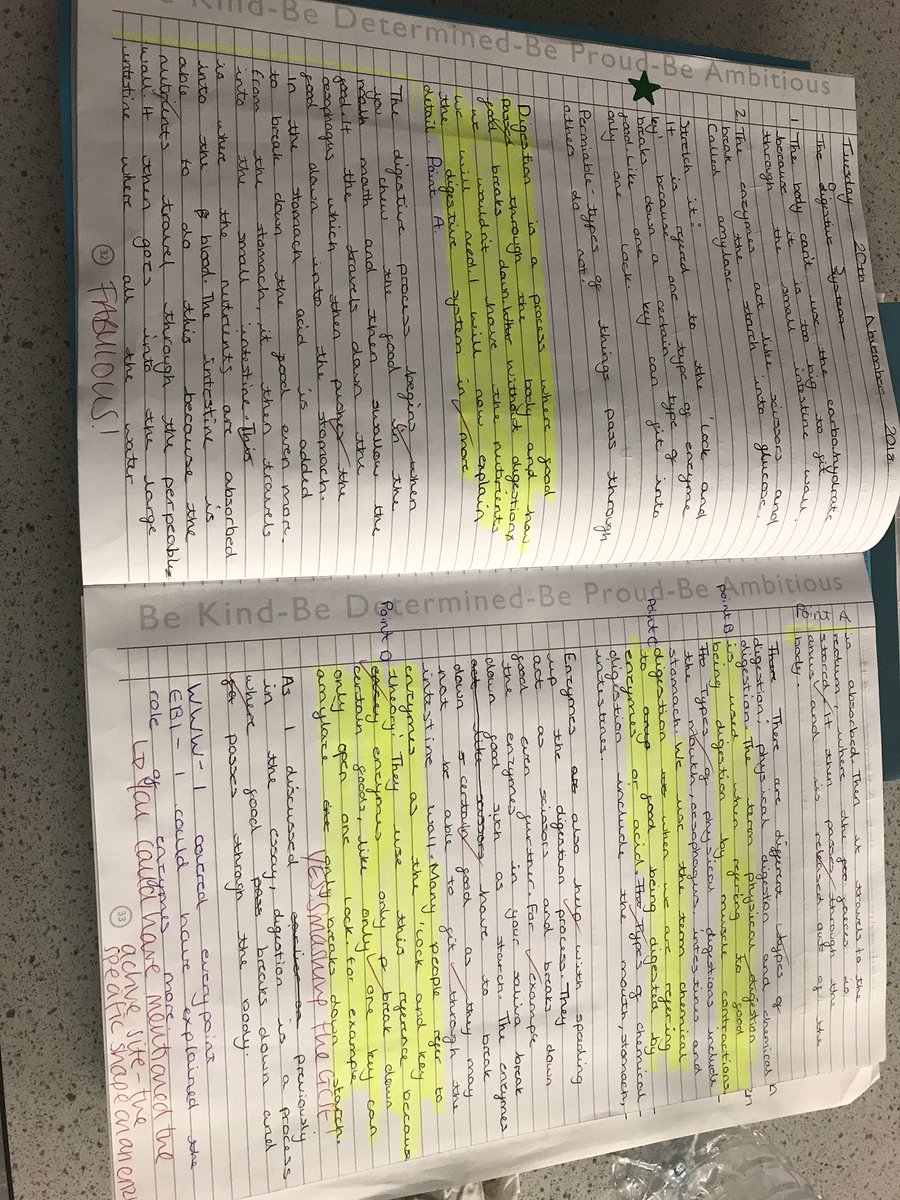 Be Kind-Be Determined-Be Proud-Be Ambitious
Tuesday 20th November 2018
The Digestive System
1. The body can't use the carbohydrate
because it is too big to fit
through the small intestine wall.
2. The enzymes act like scissors and
break the starch into glucose.
Called amylase.
Stretch it:
It is refered to the 'lock and
key' because one type of enzyme
breaks down a certain type of
food. Like a key can fit into
only one lock.
Permiable-types of things pass through
others do not.
Digestion is a process where food
passes through the body and how
food breaks down. without digestion,
we wouldn't have the nutrients
we will need. I will now explain
the digestive system in more
detail. Point A.
The digestive process begins when
you chew the food in the
mouth and then swallow the
food. It then travels down the
oesophagus which pushes the
food down into the stomach.
In the stomach acid is added
to break down the food even more.
From the stomach, it then travels
into the small intestine. This
is where the nutrients are absorbed
into the blood. The intestine is
able to do this because the
nutrients travel through the permeable
wall. It then goes into the large
intestine where all the water
32
FABULOUS!
Be Kind-Be Determined-Be Proud-Be Ambitious
is absorbed. Then it travels to the
rectum, where the faeces is
stored. It then passes through the
anus and is released out of the
body.
There are different types of
digestion, physical digestion and chemical
digestion. The term physical digestion
Point B is used when refering to food
being digestion by muscle contractions.
Types of physical digestions include
the mouth, oesophagus, intestines and
stomach. We use the term chemical
Point C digestion when we are refering
to food being digested by
enzymes or acid. Types of chemical
digestion include the mouth, stomach,
intestines.
Enzymes also help with speeding
up the digestion process. They
act as scissors and breaks down
food even further. For example
the enzymes in your saliva break
down food such as starch. The enzymes
have to break
down certain food as they may
not be able to fit through the
intestine wall. Many people refer to
enzymes as the 'lock and key
theory'. They use this refernce because
Point D enzymes only break down
certain foods, like only one key can
only open one lock. for example
amylase only breaks down starch.
YES! SMASHING THE GCSE
As I discussed previously
in the essay, digestion is a process
where food breaks down and
passes through the body.
WWW- I covered every point
EBI- I could have explained the
role of enzymes more.
↳ You could have mentioned the
active site - the
specific shape of an enz
33